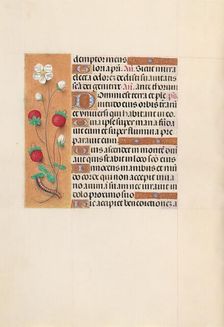 demptor meus
Gloria p̄ri. Añ. Sicut mirra
electa odorem dedisti suavitatis
sancta dei genitrix. Añ. ante thorum.
Domini est terra et ple
nitudo eius orbis terrarum et
universi qui habitant in eo
Quia ipse super maria fun
davit eum et super flumina pre
paravit eum
Quis ascendet in montem do
mini aut quis stabit in loco sancto eius
Innocens manibus et mundo
corde qui non accepit in va
no animam suam nec iuravit in do
lo proximo suo
Hic accipiet benedictionem a